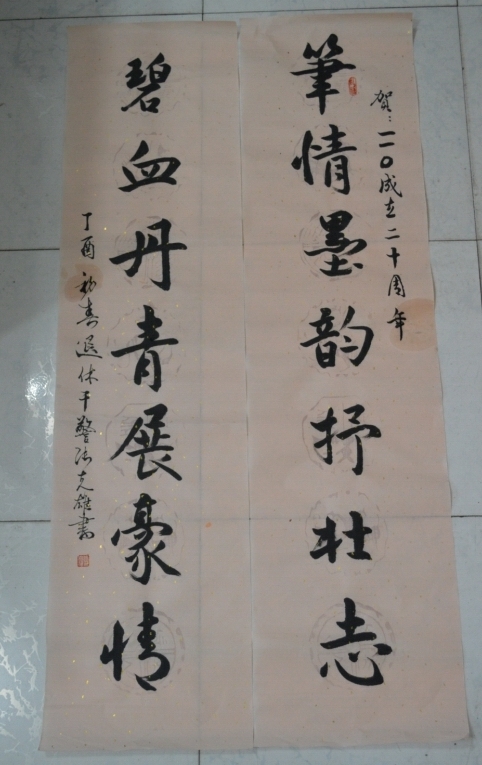 賀：一一〇成立二十周年
筆情墨韵抒壮志
碧血丹青展豪情
丁酉初春退休干警张克雄書